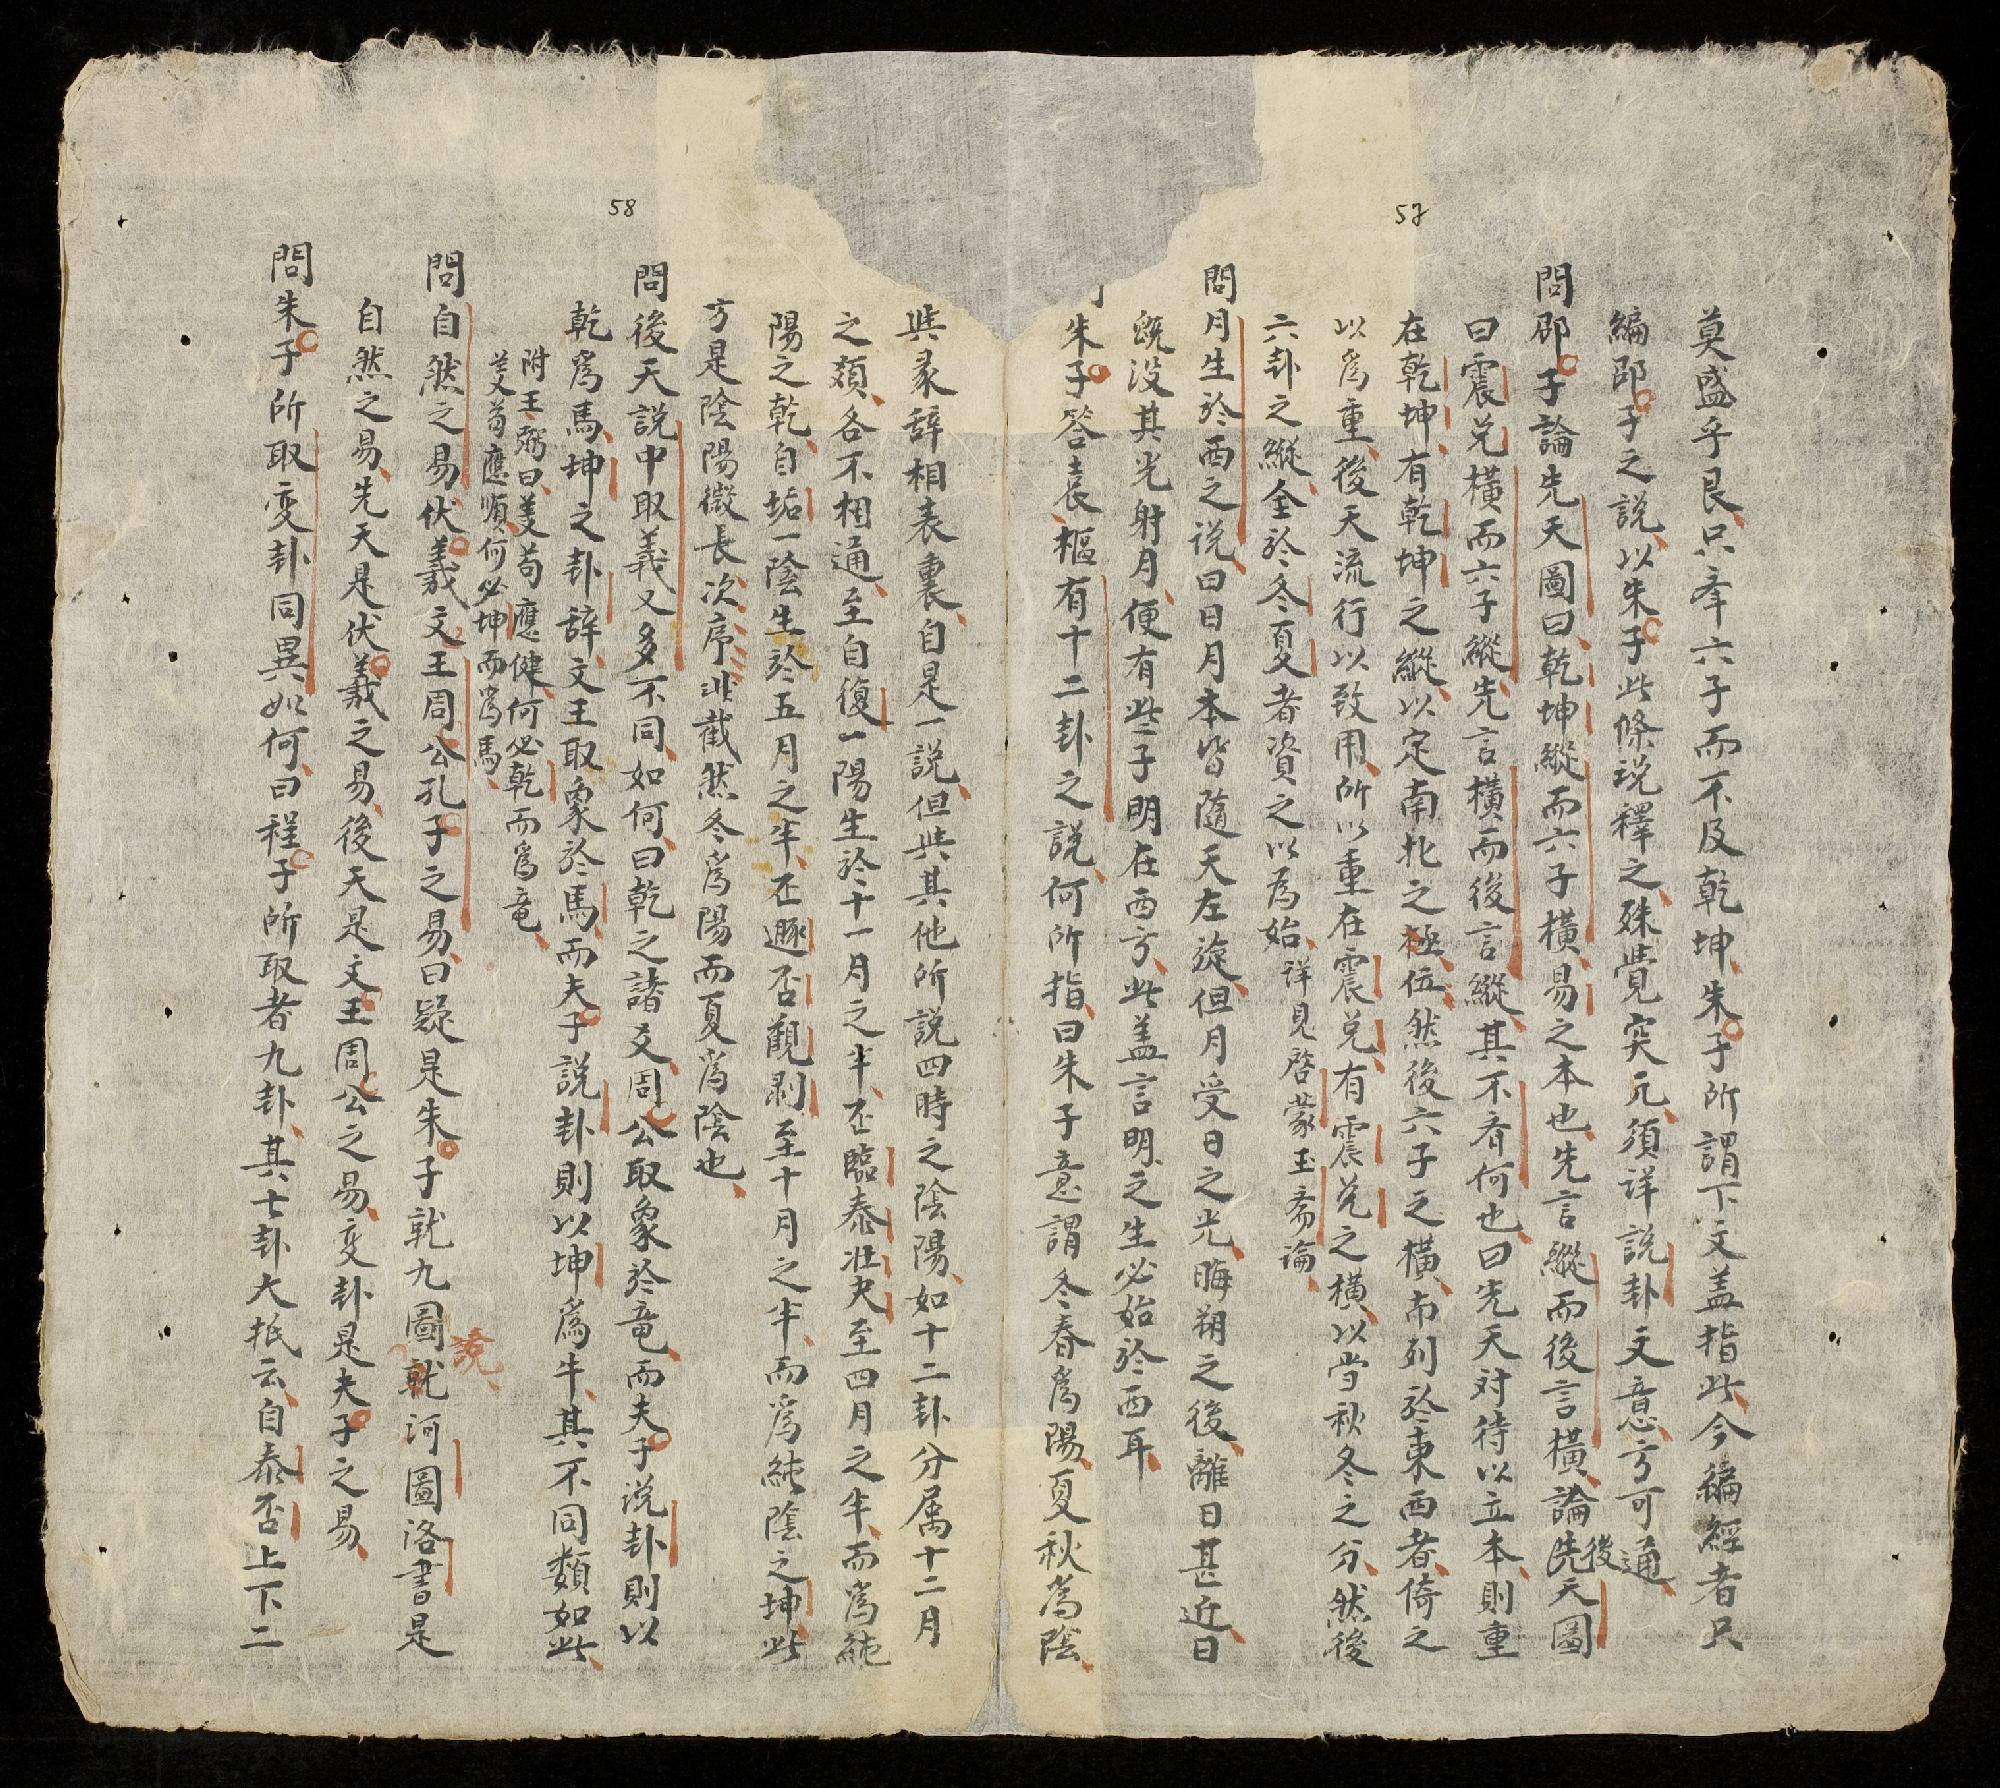 57
莫盛乎艮、只夆六子而不及乾坤、朱子所謂下文盖指此、今編經者只
編邵子之說、以朱子此條說釋之、殊覺突兀、須詳說卦文意方可通、
問邵子論先天圖曰、乾坤縱而六子橫、易之本也、先言縱而後言橫、論後天圖
曰震兌橫而六子縱、先言橫而後言縱、其不眘何也、曰先天対待以立本、則重
在乾坤、有乾坤之縱、以定南北之極位、然後六子之橫、布列於東西者、倚之
以爲重、後天流行以致用、所以重在震兌、有震兌之橫、以当秋冬之分、然後
六卦之縱、全於冬夏者資之以為始、詳見啓蒙玉斋論、
問月生於西之說、曰日月本皆隨天左旋、但月受日之光、晦朔之後、離日甚近、日
旣没其光射月、便有些子明在西方、此盖言明之生必始於西耳
朱子答袁樞有十二卦之說、何所指、曰朱子意謂冬春爲陽、夏秋為陰、
58
與彖辞相表裏、自是一說、但與其他所說四時之陰陽、如十二卦分属十二月
之類、各不相通、至自復一陽生於十一月之半、歷臨泰壮夬至四月之半、而爲純
陽之乾、自姤一陰生於五月之半、歷遯否觀剥至十月之半、而爲純陰之坤、此
方是陰陽微長次序、非截然冬爲陽而夏爲陰也、
問後天說中取義又多不同、如何、曰乾之諸爻、周公取象於竜、而夫子說卦則以
乾爲馬、坤之卦辞、文王取象於馬、而夫子說卦則以坤爲牛、其不同類如此、
附王弼曰、爻苟應健、何必乾而爲竜、
爻苟應順、何必坤而爲馬、
問自然之易、伏羲文王周公孔子之易、曰疑是朱子就九圖說就河圖洛書是
自然之易、先天是伏羲之易、後天是文王周公之易、变卦是夫子之易、
問朱子所取变卦同異如何、曰程子所取者九卦、其七卦大抵云、自泰否上下二